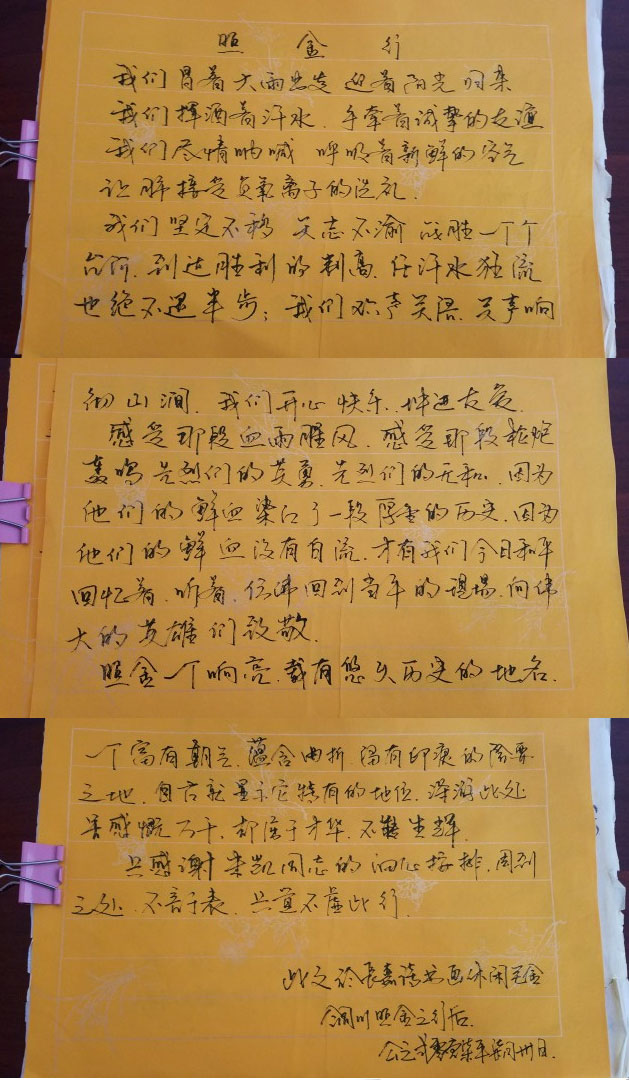 照金行
我们冒着大雨出发 迎着阳光归来
我们挥洒着汗水、手牵着诚挚的友谊
我们尽情呐喊 呼吸着新鲜的空气
让肺接受负氧离子的洗礼.
我们坚定不移 矢志不渝 战胜一个个
台阶.到达胜利的制高、任汗水狂流
也绝不退半步;我们欢声笑语.笑声响
彻山涧.我们开心快乐.增进友爱.
感受那段血雨腥风.感受那段枪炮
轰鸣先烈们的英勇.先烈们的无私.因为
他们的鲜血染红了一段厚重的历史.因为
他们的鲜血没有白流.才有我们今日和平
回忆着.听着.仿佛回到当年的现场.向伟
大的英雄们致敬.
照金一个响亮.载有悠久历史的地名.
一个富有朝气.蕴含曲折.留有印痕的险要
之地.自古就显示它特有的地位.深游此处
皆感慨万千.却库于才华.不能生辉.
只感谢 凯同志的细心安排.周到
之处.不言于表.只道不虚此行.
此文於长嘉 书画休闲
铜川照金之行后.
公元 日.